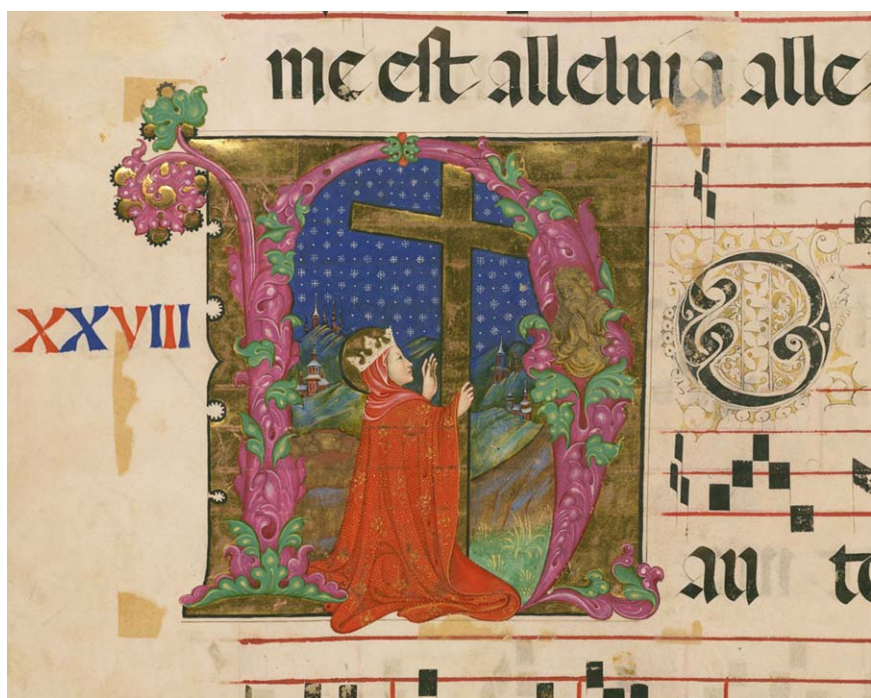 me est alleluia alle
XXVIII
N
au te